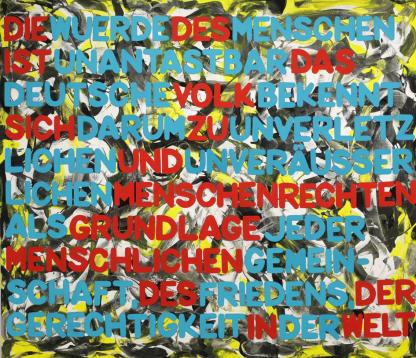 DIEWUERDEDESMENSCHEN
ISTUNANTASTBARDAS
DEUTSCHEVOLKBEKENNT
SICHDARUMZUUNVERLETZ
LICHENUNDUNVERÄUSSER
LICHENMENSCHENRECHTEN
ALSGRUNDLAGEJEDER
MENSCHLICHENGEMEIN-
SCHAFT,DESFRIEDENS,DER
GERECHTIGKEITINDERWELT